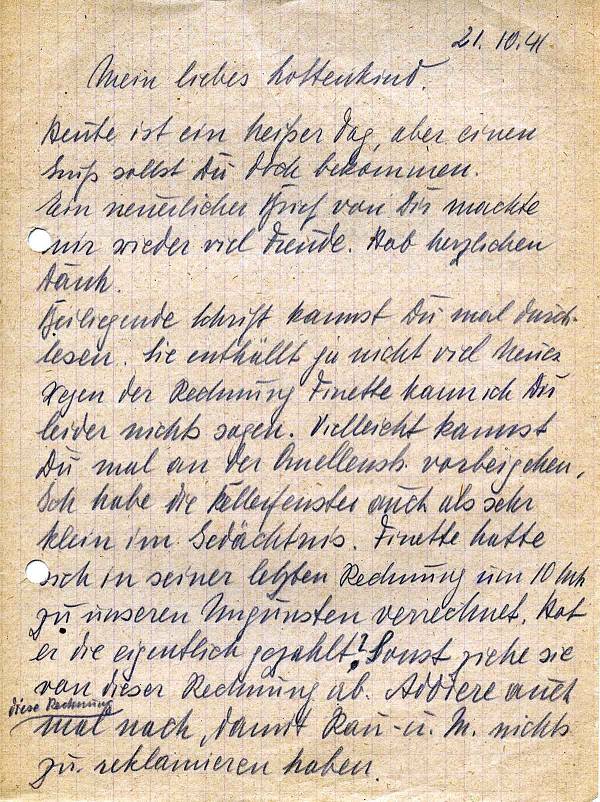 21.10.41
Mein liebes Lottenkind.
Heute ist ein heißer Tag, aber einen
Gruß sollst Du doch bekommen.
Dein neuerlicher Brief von Dir machte
mir wieder viel Freude. Hab herzlichen
Dank.
Beiliegende Schrift kannst Du mal durch-
lesen. Sie enthällt ja nicht viel Neues
Wegen der Rechnung Finette kann ich Du
leider nichts sagen. Vielleicht kannst
Du mal an der Quellenstr. vorbeigehen,
Ich habe die Kellerfenster auch als sehr
klein im Gedächtnis. Finette hatte
sich in seiner letzten Rechnung um 10 Mk
zu unseren Ungunsten verrechnet. Hat
er die eigentlich gezahlt? Sonst ziehe sie
von dieser Rechnung ab. Addiere auch
diese Rechnung
mal nach, damit Rau- u. M. nichts
zu reklamieren haben.